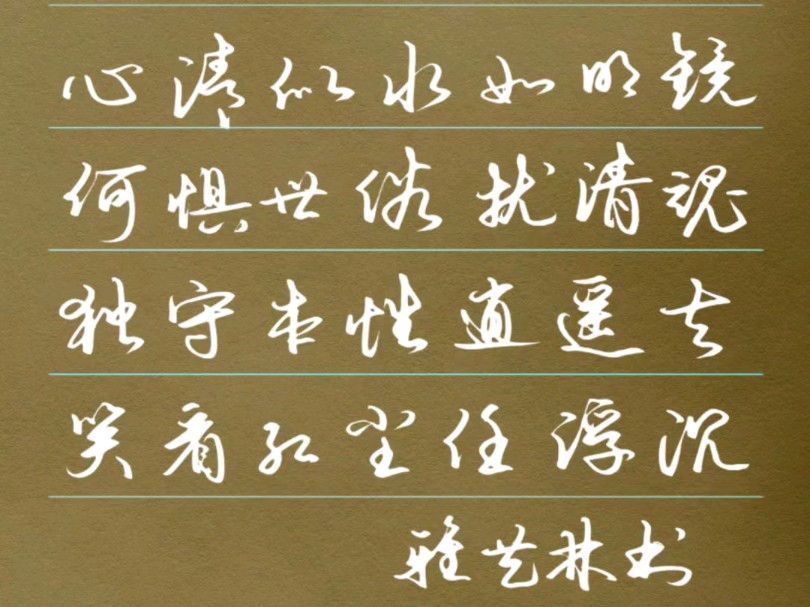 心清似水如明镜
何惧世俗扰清魂
独守本性逍遥去
笑看红尘任浮沉
雅艺林书